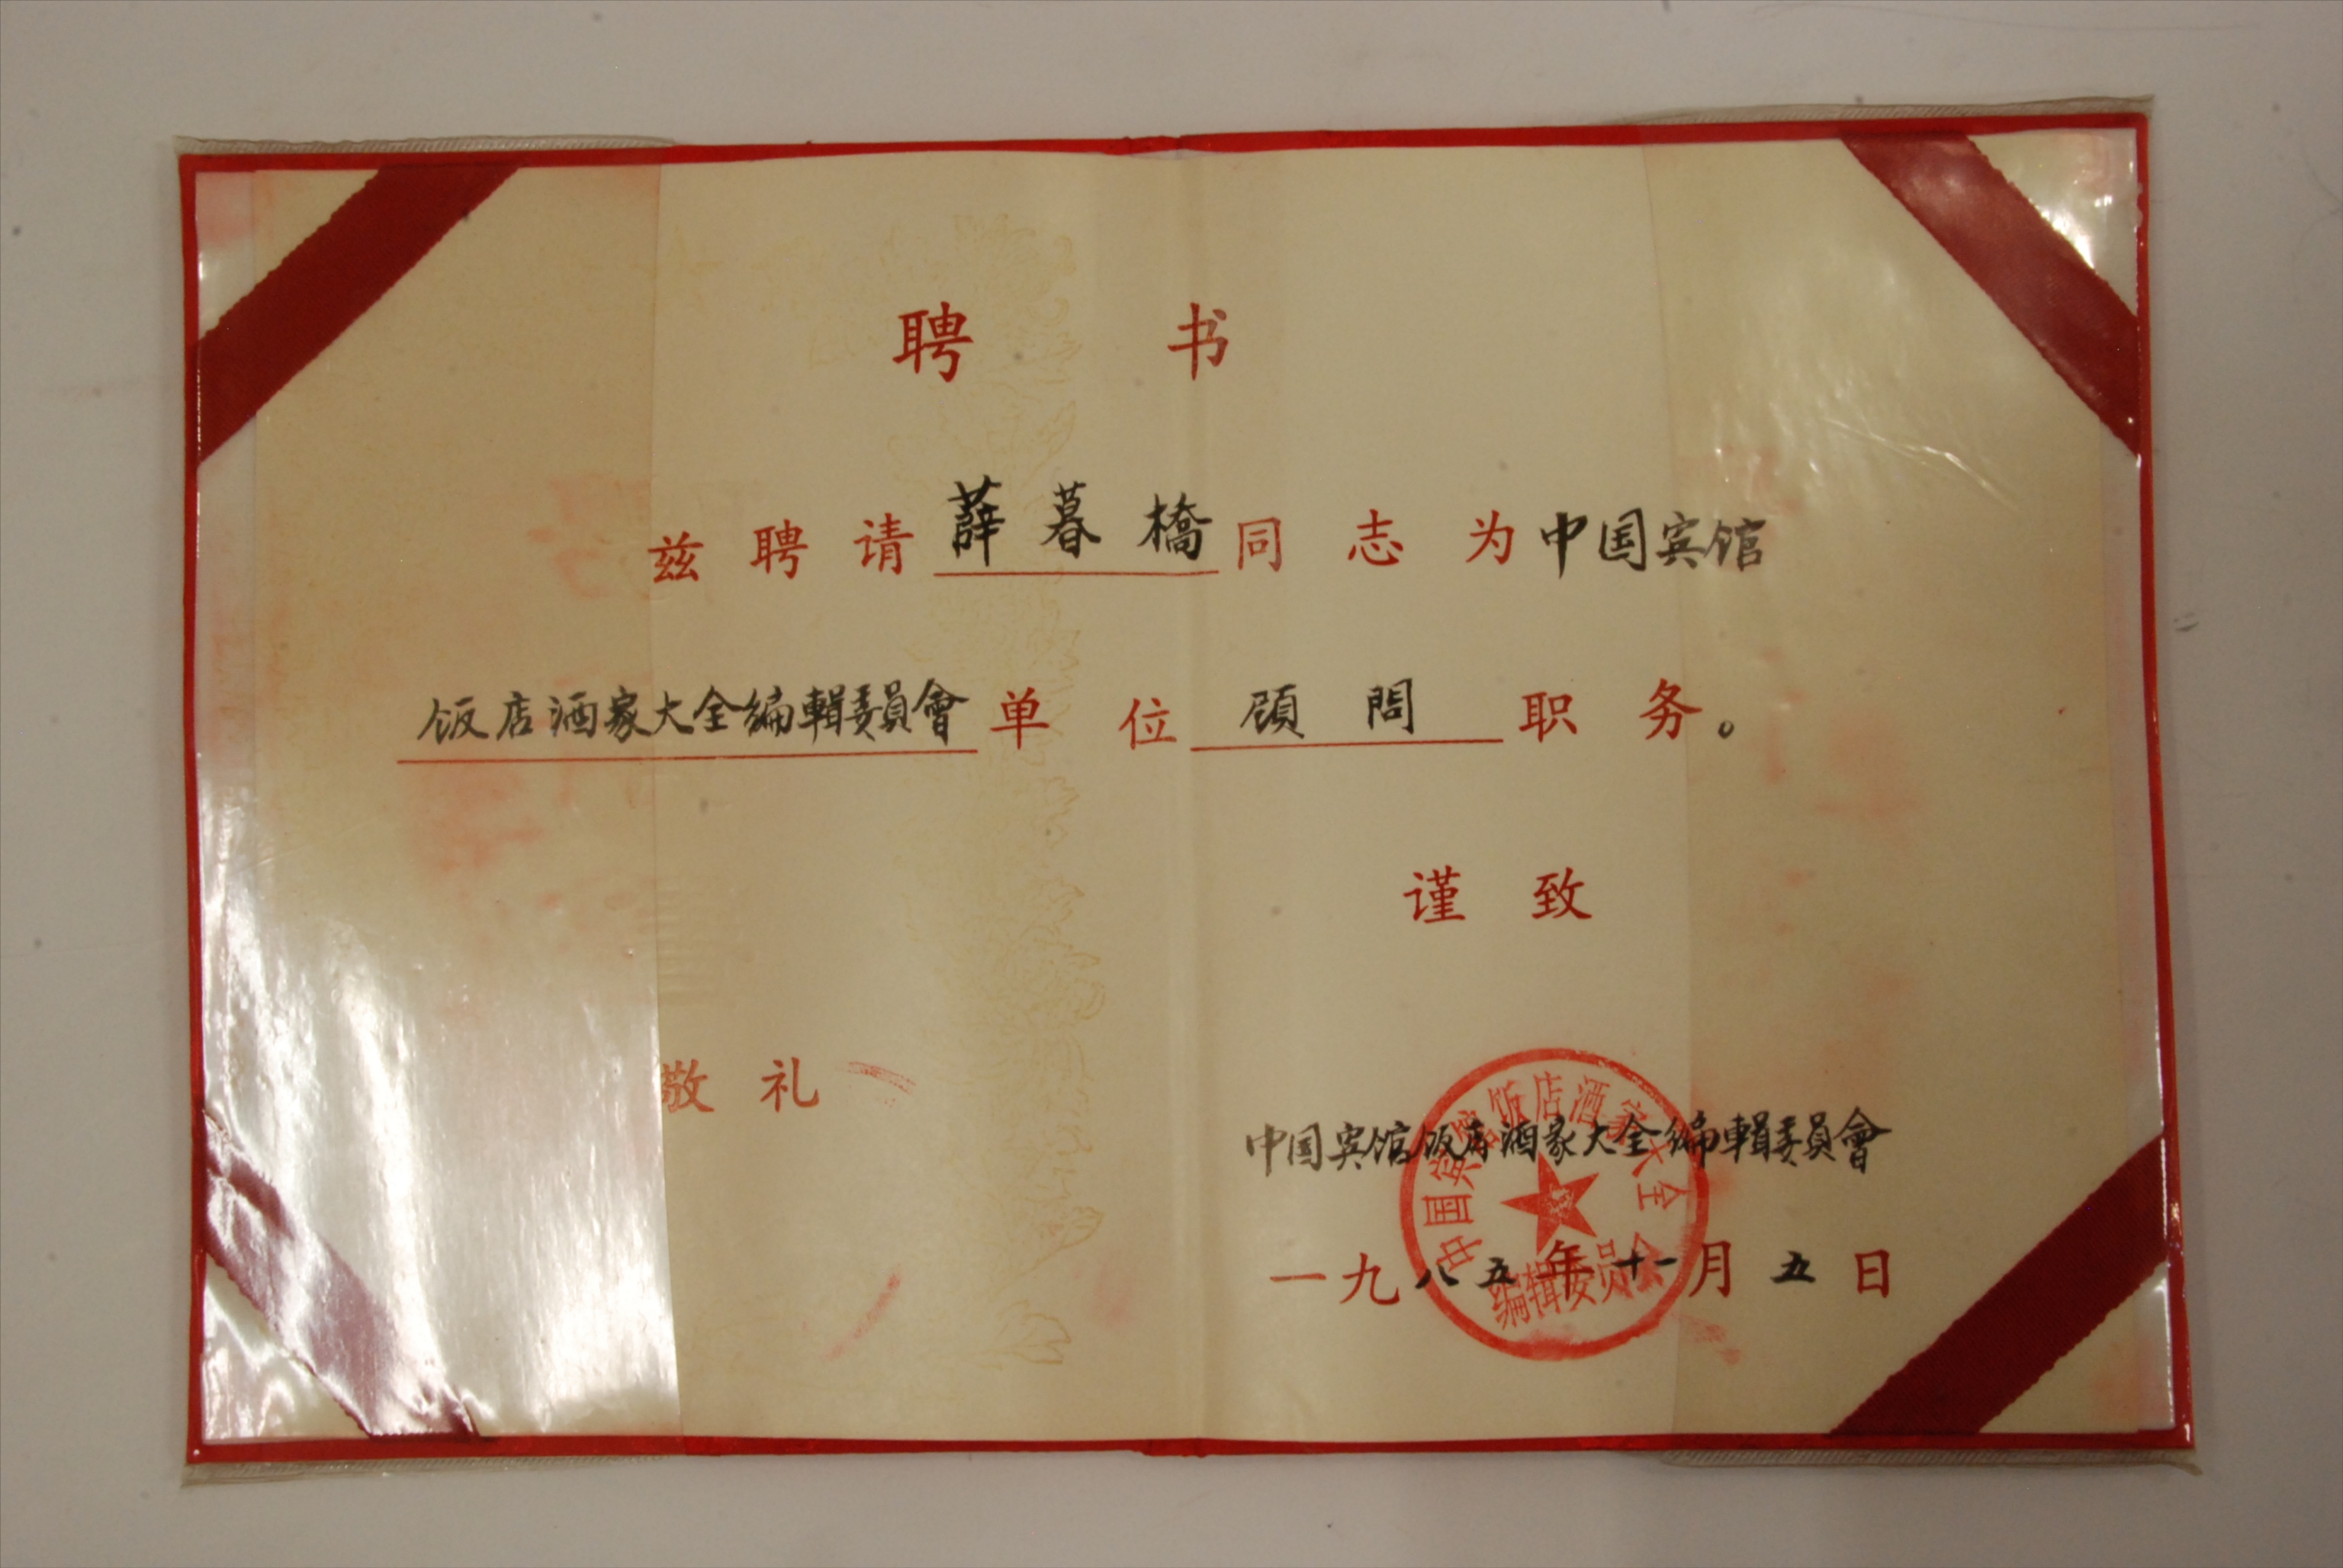 聘书
兹聘请薛暮橋同志为中国宾馆
饭店酒家大全编輯委員會单位顾問职务。
谨致
敬礼
中国宾馆饭店酒家大全编輯委員會
中国宾馆饭店酒家大全
编辑委员会
一九八五年十一月五日